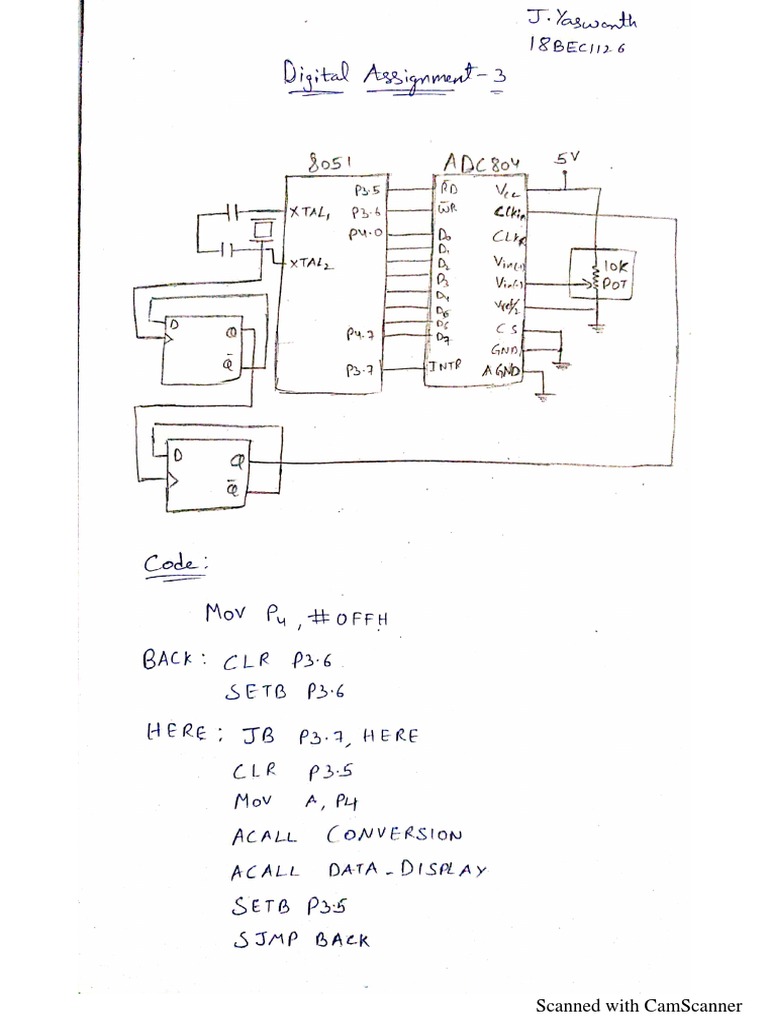 J. Yaswanth
18BEC1126
Digital Assignment-3
8051
ADC804
5V
P3.5
RD
Vcc
XTAL1
P3.6
WR
P4.0
D0
D1
XTAL2
D2
Vin(+)
10K
D3
Vin(-)
POT
D4
Vref/2
D
Q
D6
D5
CS
P4.7
D7
GND
Q̄
P3.7
INTR
A GND
D
Q
Q̄
Code:
Mov P4, #0FFH
BACK: CLR P3.6
SETB P3.6
HERE: JB P3.7, HERE
CLR P3.5
Mov A, P4
ACALL CONVERSION
ACALL DATA-DISPLAY
SETB P3.5
SJMP BACK
Scanned with CamScanner